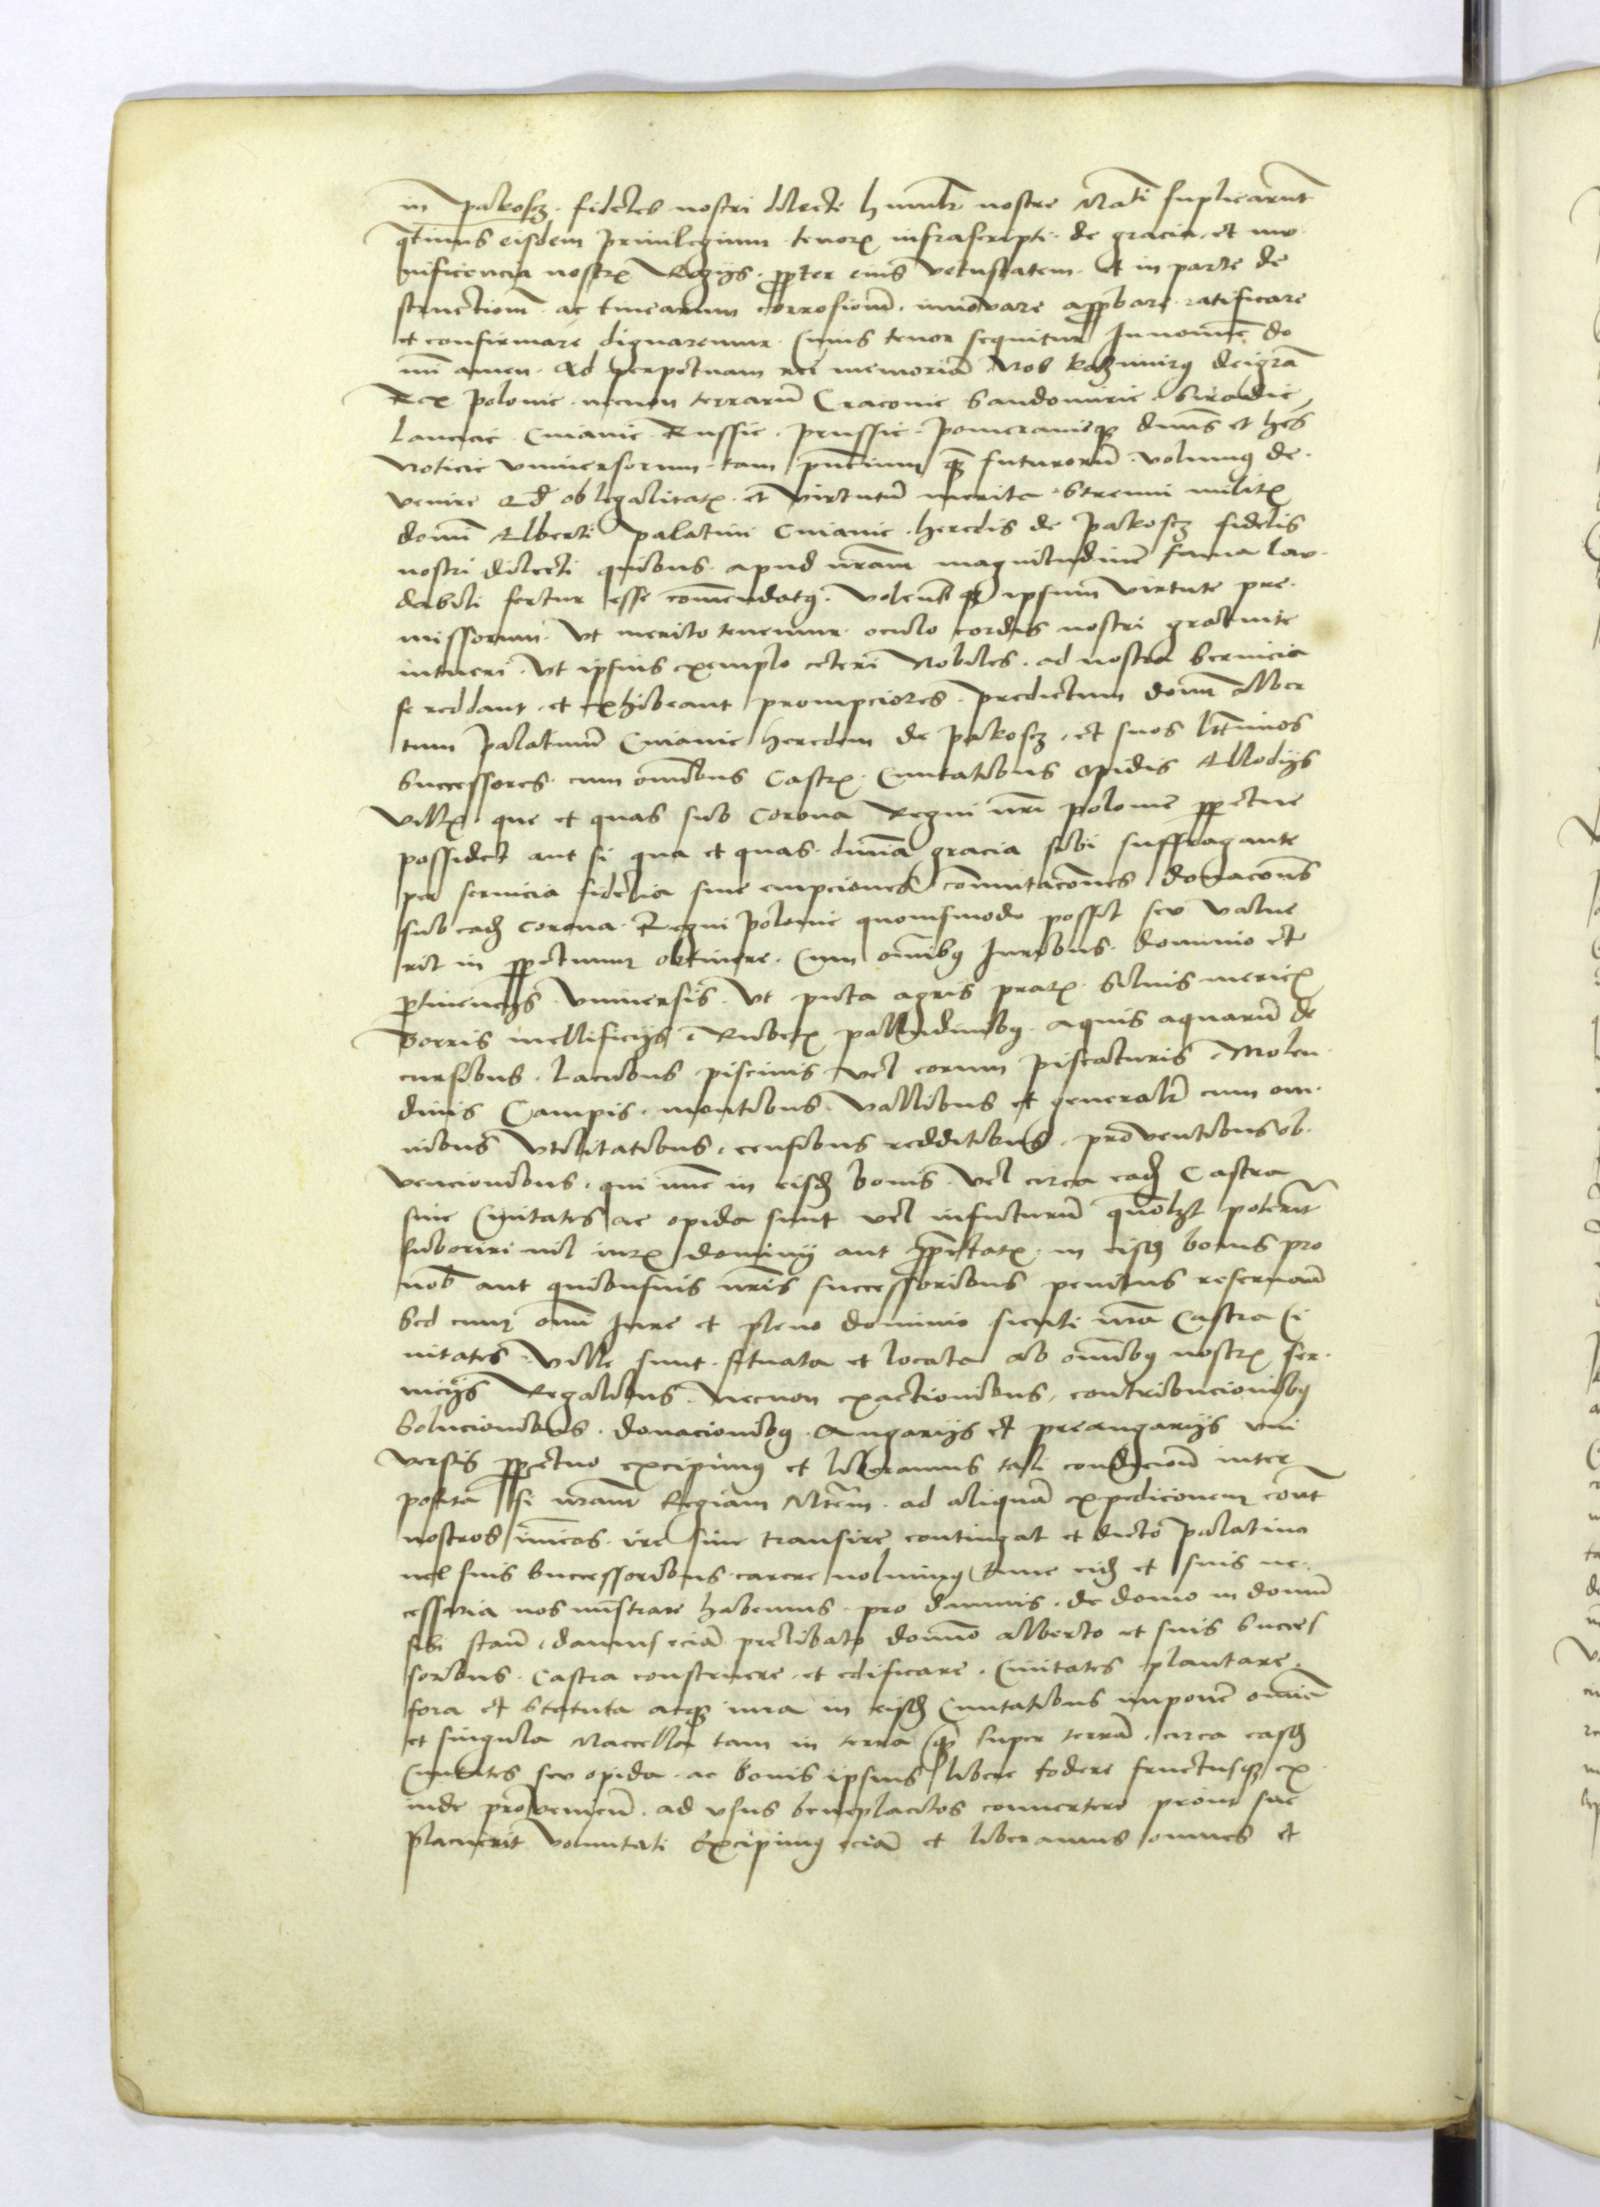 in Pakosz. fideles nostri dilecti humilr nostre Mati suplicarunt
qtinus eisdem priuilegium tenor infrascripti de gracia et mu
nificencia nostr Regys. propter eius vetustatem et in parte de
structiom ac tinearum corrosiom. innouare approbare ratificare
et confirmare dignaremur Cuius tenor sequitur In nomine do
mi amen. Ad perpetuam rei memoriam Nos Kazimirus dei gra
Rex Polonie necnon terrarum Cracouie Sandomirie Siradie
Lancicie Cuiauie Russie Prussie Pomeranieque dnus et hes
Noticie vniuersorum tam pncium quam futurorum volumus de
venire Qd ob legalitatis et virtutum merita Strenui militis
domi Alberti Palatini Cuiauie heredis de Pakosz fidelis
nostri dilecti quibus apud nram magnitudinem fama lau
dabili fertur esse comendatus. Volentesque ipsum virtute pre
missorum. Vt merito tenemur oculo cordis nostri gratuite
intueri Vt ipsius exemplo ceteri Nobiles ad nostra Seruicia
se reddant et exhibeant prompciores. predictum domi Alber
tum Palatinum Cuiauie heredem de Pakosz et suos ltimos
Successores cum omibus Castris Ciuitatibus Opidis Allodys
Villis que et quas sub Corona Regni nri Polonie perpetue
possidet aut si qua et quas diuina gracia sibi suffragante
per seruicia fidelia siue empciones comutacones donacones
sub eadem Corona Regni Polonie quouismodo possit seu value
rit in perpetuum obtinere. Cum omnibus Iuribus dominio et
pertinencys Vniuersis Vt puta agris pratis Siluis mericis
Borris mellificys Rubetis palludinibus aquis aquarum de
cursibus lacubus piscinis vel eorum Piscaturis Molen
dinis Campis montibus Vallibus et generalr cum om
nibus Vtilitatibus censibus redditibus prouentibus ob
vencionibus qui nunc in eisdem bonis vel circa eadem Castra
siue Ciuitates ac opida sunt vel in futurum quomolibet poterit
suboriri nil iuris dominy aut proprietatis in eisdem bonis pro
nob aut quibusuis nris successoribus penitus reseruan
Sed cum omi Iure et pleno dominio sicuti nra Castra Ci
uitates Ville sunt situata et locata ab omibus nostris ser
uicys Regalibus Necnon exactionibus contribucionibus
Solucionibus donacionibus Angarys et preangarys vni
versis perpetuo excipimus et liberamus tali condicion inter
posita Si nram Regiam Mtem ad aliquam expediconem cont
nostros inimicos ire siue transire contingat et dicto Palatino
uel suis Successoribus carere nolumus Tunc eidem et suis ne
cessaria nos mistrare habemus pro damnis de domo in domum
sibi stan damus eciam prelibato domino Alberto et suis Succes
soribus Castra construere et edificare Ciuitates plantare
fora et Statuta atque iura in eisdem Ciuitatibus imponere omnia
et singula Maccella tam in terra quam super terram circa easdem
Ciuitates seu opida ac bonis ipsius libere fodere fructusque ex
inde prouenien ad vsus beneplacitos conuertere prout sue
placuerit voluntati Excipimus eciam et liberamus omnes et